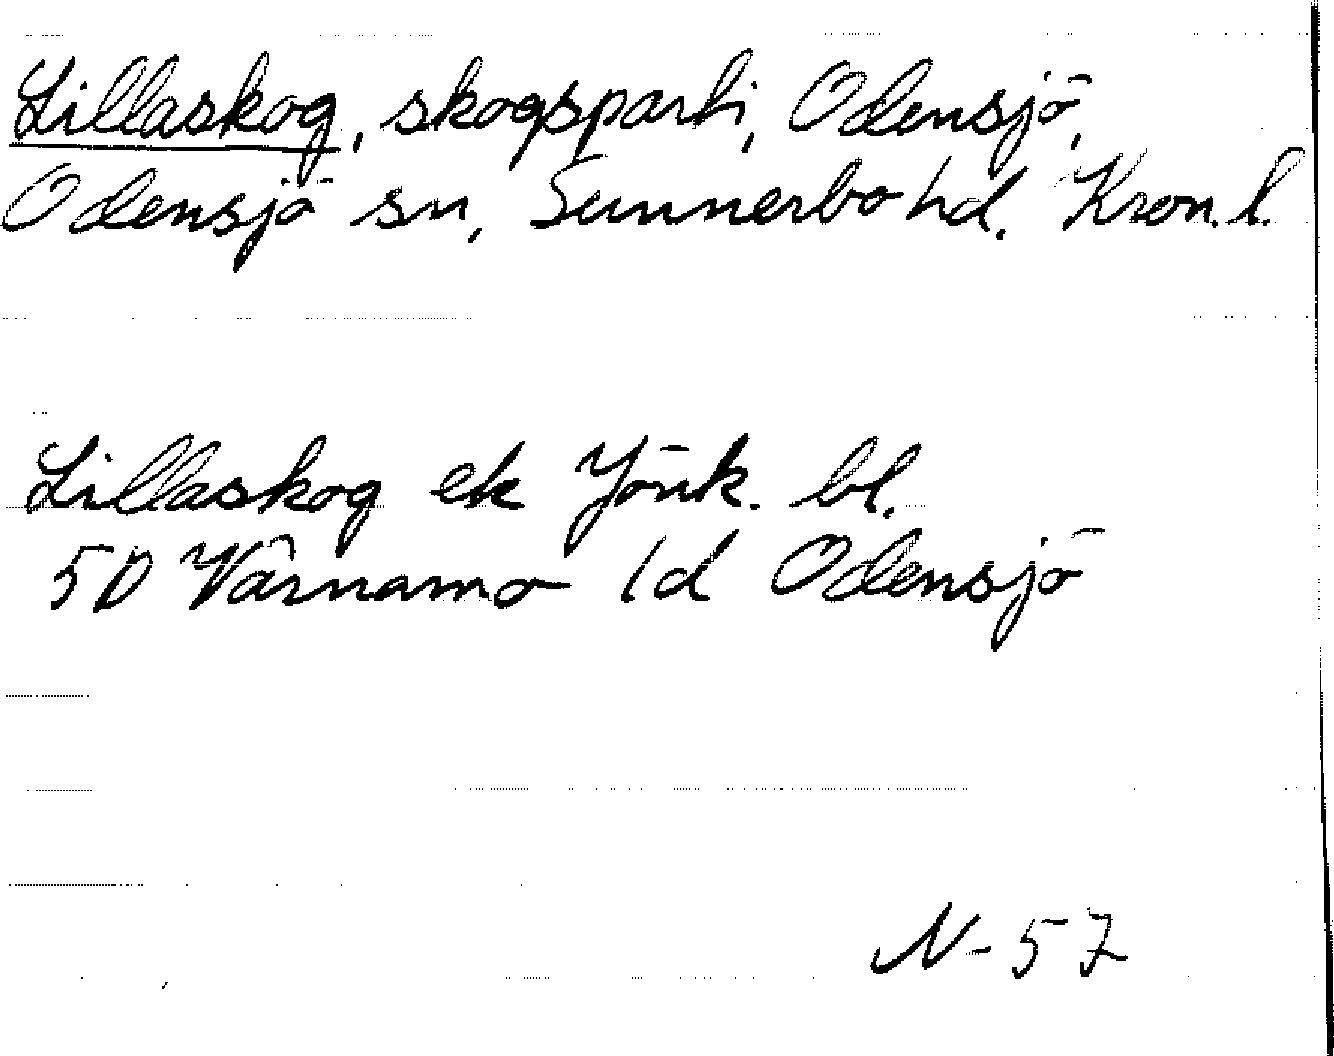 Lillaskog, skogsparti, Odensjö,
Odensjö sn, Sunnerbo hd. Kron. l.
Lillaskog ek Jönk. bl.
5D Värnamo 1d Odensjö
N-57